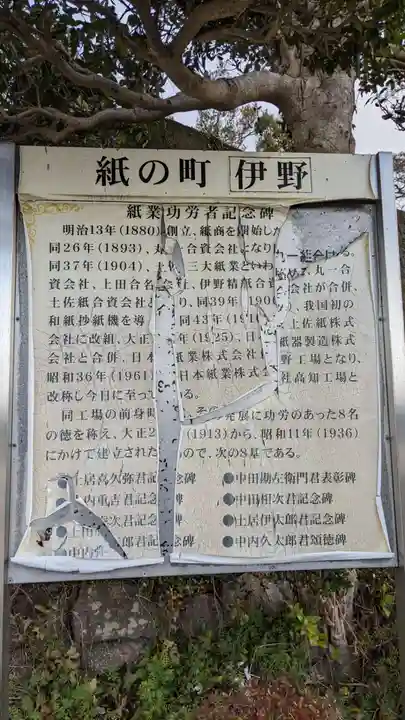 紙の町 伊野
紙業功労者記念碑
明治13年(1880)創立、紙商を開始した
同26年(1893)、丸一合資会社になり 丸一組合
同37年(1904)、土 三大紙業といわ 丸一合
資会社、上田合名会社、伊野精紙合資会社が合併、
土佐紙合資会社とな り、同39年(190 、我国初の
和紙抄紙機を導 同43年(191 土佐紙株式
会社に改組、大正 年(1925)、日 紙器製造株式
会社と合併、日本紙業株式会社 野工場となり、
昭和36年(1961) 日本紙業株式会社高知工場と
改称し今日に至って る。
同工場の前身時 その 発展に功労のあった8名
の徳を称え、大正2 (1913)から、昭和11年(1936)
にかけて建立された ので、次の8基である。
●土居喜久弥君記念碑 ●中田勘左衛門君表彰碑
内重吉君記念碑 ●中田相次君記念碑
次君記念碑 ●土居伊太郎君記念碑
●上田 郎君記念碑 ●中内久太郎君頌徳碑
●中内